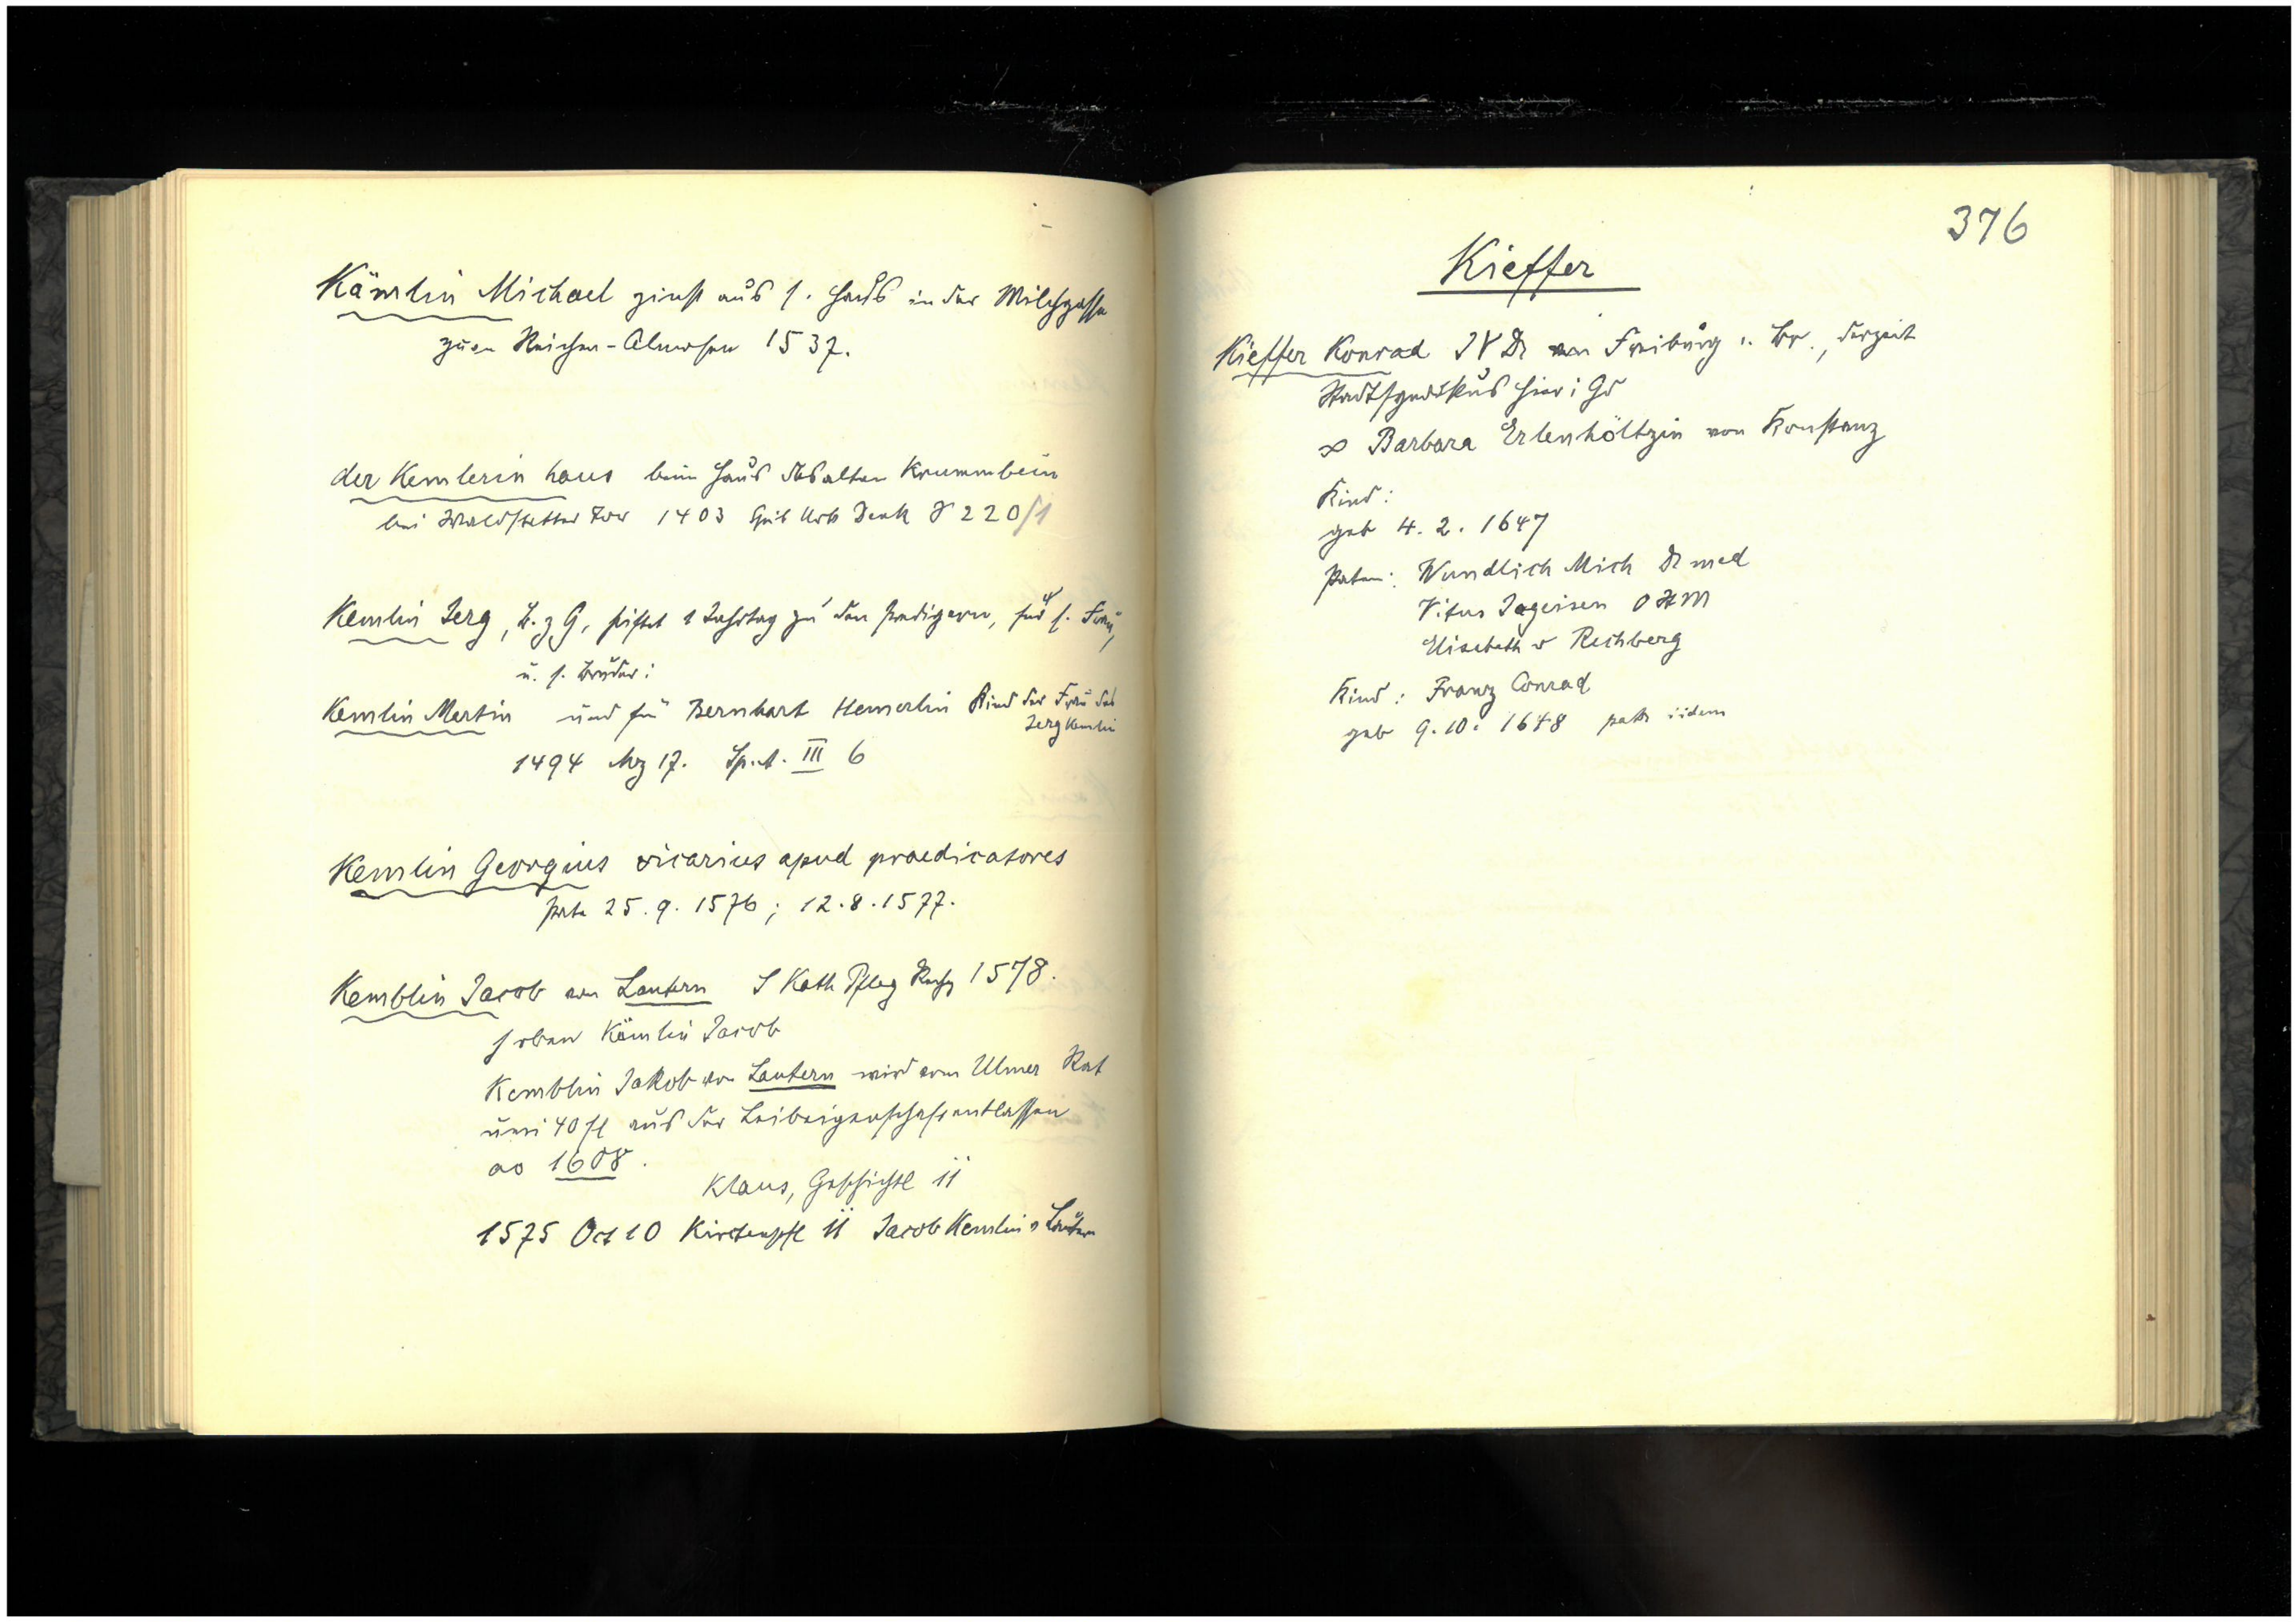 Kämlin Michael zinst aus s. Haus in der Milchgasse
zum Reichen-Almosen 1537.
der Kemlerin haus beim Haus des alten Krummbein
bei Waldstetter Tor 1403 Urk Denk 220/1
Kemlin Jerg, B. z G, stiftet 1 Jahrtag zu den Predigern, für s. Frau,
u. s. Bruder:
Kemlin Martin und für Bernhart Hemerlin Kind der Frau des
Jerg Kemlin
1494 Mrz 17. Sp. A. III 6
Kemlin Georgius vicarius apud praedicatores
Pate 25.9.1576; 12.8.1577.
Kemblin Jacob von Lautern S Kath Pfleg Rechg 1578.
s oben Kämlin Jacob
Kemblin Jakob von Lautern wird vom Ulmer Rat
um 40 fl aus der Leibeigenschaft entlassen
ao 1608.
Klaus, Geschichtl II
1575 Oct 10 Kirchenpfl II Jacob Kemlin v Lautern
376
Kieffer
Kieffer Konrad IV Dr von Freiburg i. Br., derzeit
Stadtsyndikus hier i Gd
∞ Barbara Erlenhöltzin von Konstanz
Kind:
geb 4.2.1647
Paten: Wundlich Mich Dr med
Vitus Jageisen
Elisabeth v Rechberg
Kind: Franz Conrad
geb 9.10.1648 patr iidem